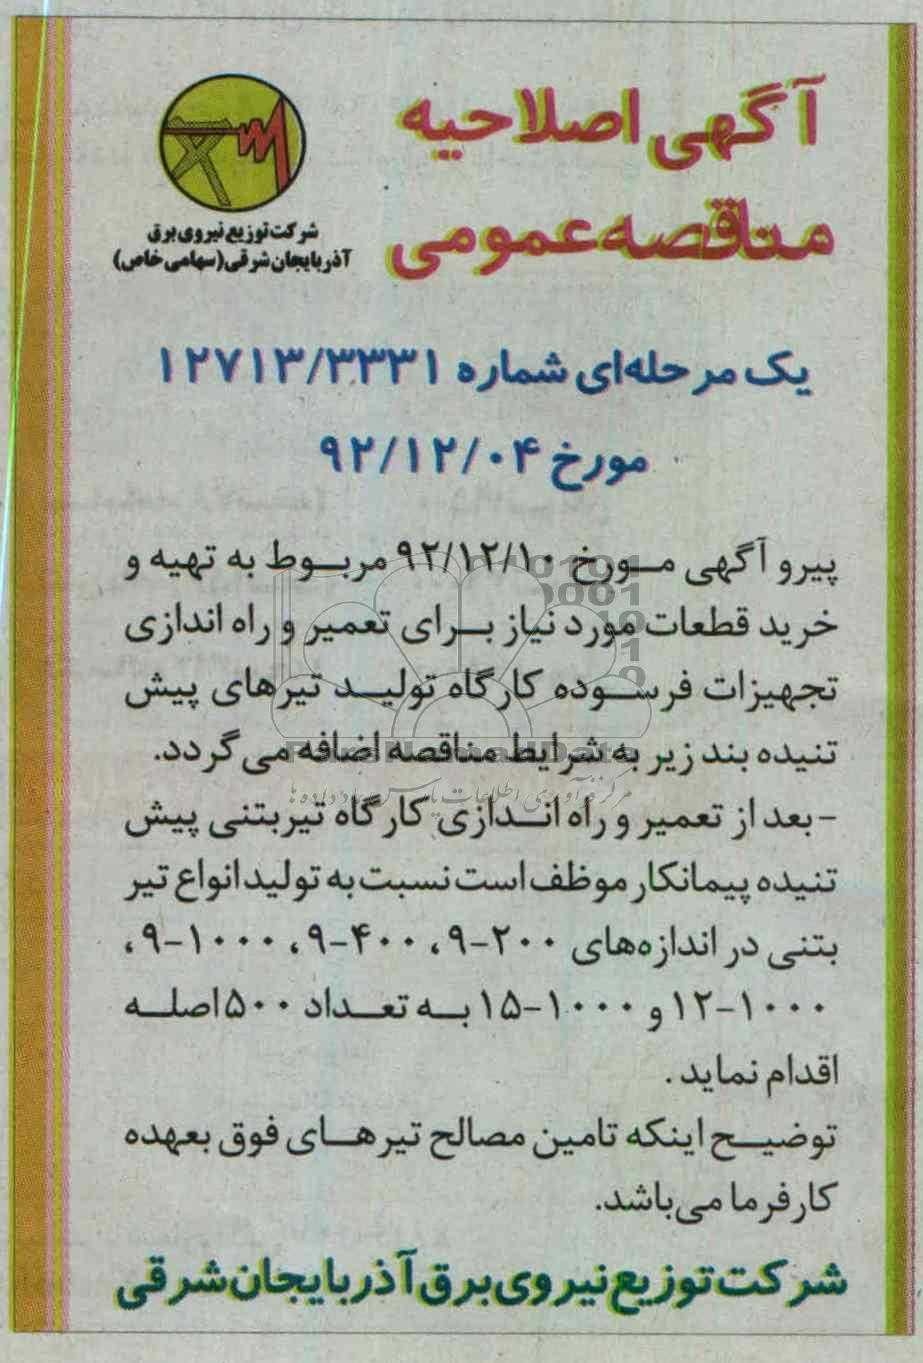 آگهی اصلاحیه
مناقصه عمومی
شرکت توزیع نیروی برق
آذربایجان شرقی (سهامی خاص)
یک مرحله‌ای شماره ۱۲۷۱۳/۳۳۳۱
مورخ ۹۲/۱۲/۰۴
پیرو آگهی مورخ ۹۲/۱۲/۱۰ مربوط به تهیه و
خرید قطعات مورد نیاز برای تعمیر و راه اندازی
تجهیزات فرسوده کارگاه تولید تیرهای پیش
تنیده بند زیر به شرایط مناقصه اضافه می گردد.
ParsNamadData
مرکز فرآوری اطلاعات پارس نماد داده‌ها
- بعد از تعمیر و راه اندازی کارگاه تیر بتنی پیش
تنیده پیمانکار موظف است نسبت به تولید انواع تیر
بتنی در اندازه‌های ۲۰۰-۹، ۴۰۰-۹، ۱۰۰۰-۹،
۱۰۰۰-۱۲ و ۱۰۰۰-۱۵ به تعداد ۵۰۰ اصله
اقدام نماید .
توضیح اینکه تامین مصالح تیرهای فوق بعهده
کارفرما می‌باشد.
شرکت توزیع نیروی برق آذربایجان شرقی